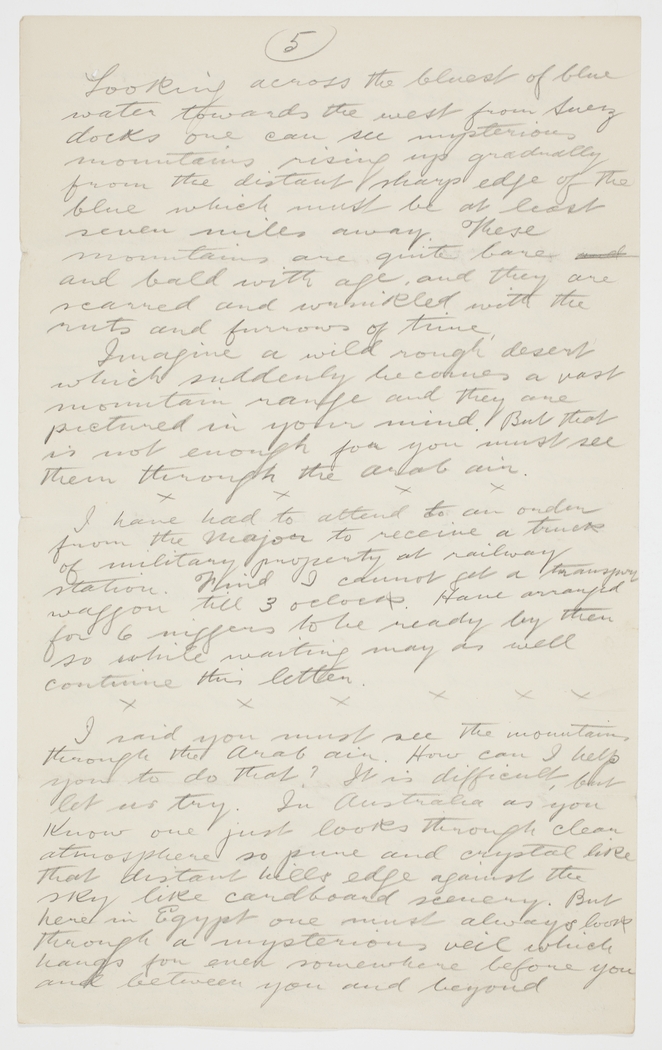 5
Looking across the bluest of blue
water towards the west from Suez
docks one can see mysterious
mountains rising up gradually
from the distant sharp edge of the
blue which must be at least
seven miles away. These
mountains are quite bare and
and bald with age, and they are
scarred and wrinkled with the
ruts and furrows of time.
Imagine a wild rough desert
which suddenly becomes a vast
mountain range and they are
pictured in your mind. But that
is not enough for you must see
them through the Arab air.
x x x x
I have had to attend to an order
from the Major to receive a truck
of military property at railway
station. Find I cannot get a transport
waggon till 3 oclock. Have arranged
for 6 niggers to be ready by then
so while waiting may as well
continue this letter.
x x x x x x
I said you must see the mountains
through the Arab air. How can I help
you to do that? It is difficult, but
let us try. In Australia as you
know one just looks through clear
atmosphere so pure and crystal like
that distant hills edge against the
sky like cardboard scenery. But
here in Egypt one must always look
through a mysterious veil which
hangs for ever somewhere before you
and between you and beyond